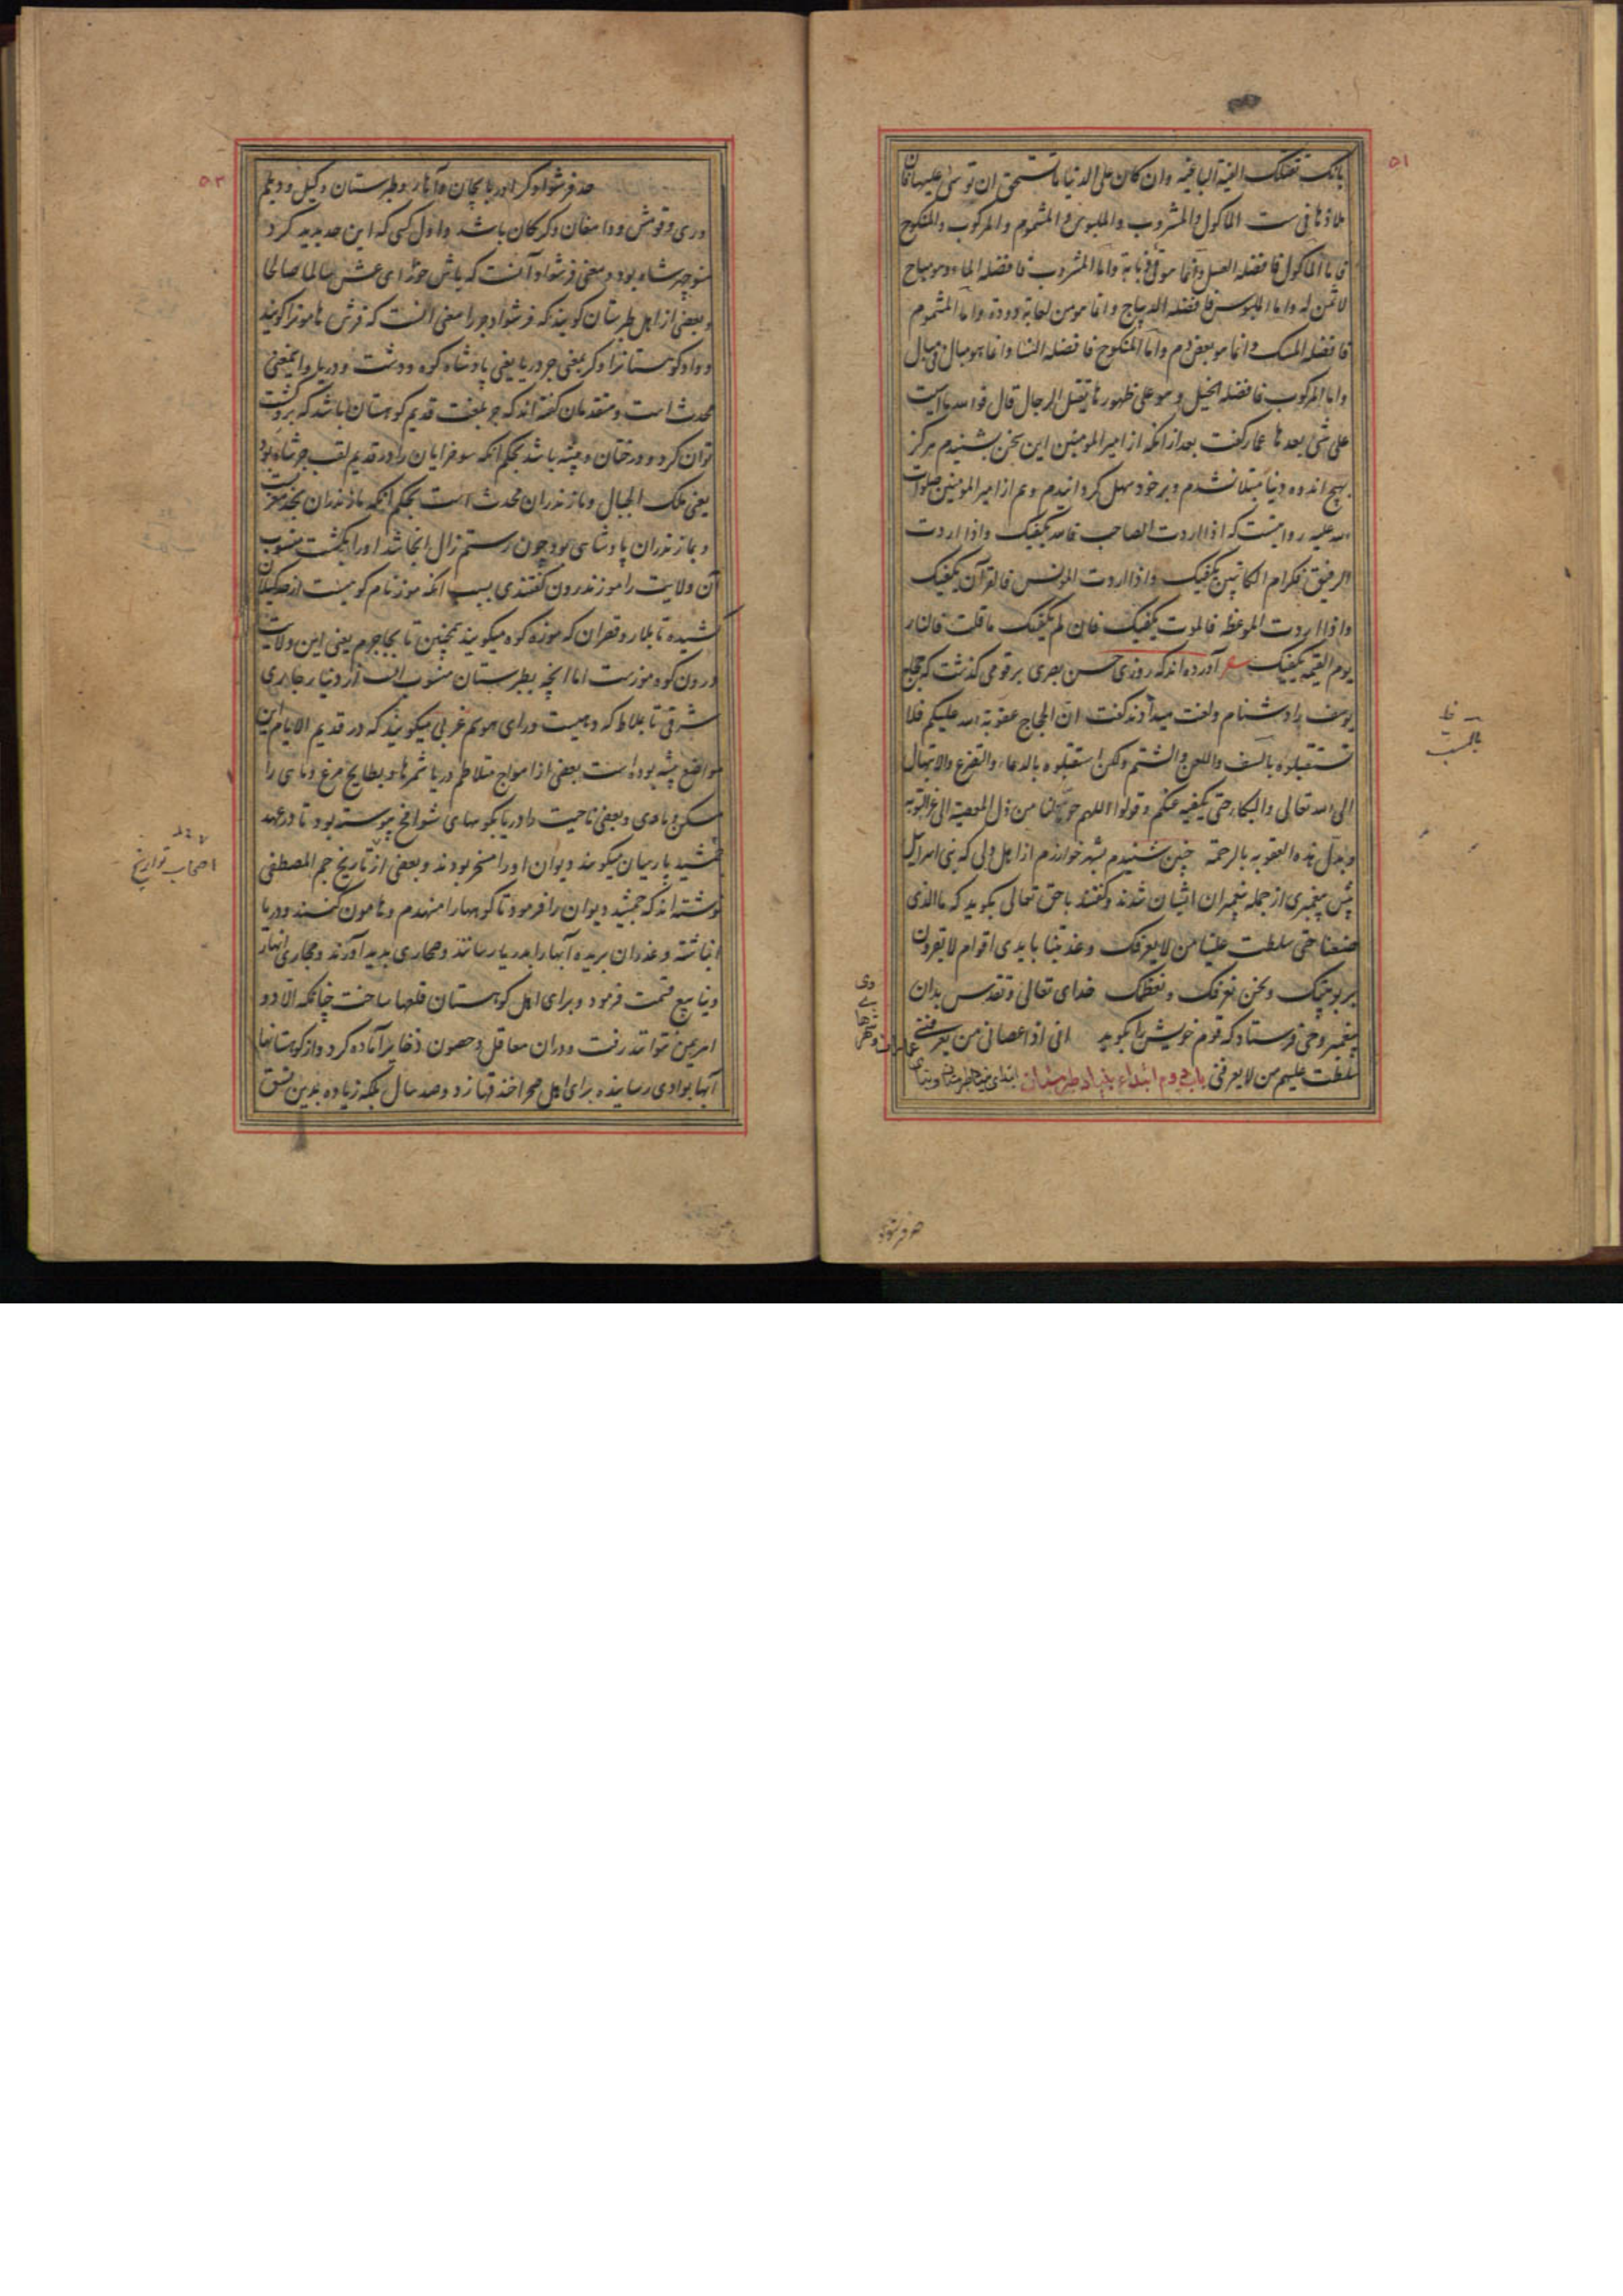 ۵۱
بانک تفتک الفیة الباقیة وان کان علی الدنیا ما تستحق ان توسی علیها فان
ملاذها فی ست الماکول والمشروب والملبوس والمشموم والمرکوب والمنکوح
فاما الماکول فافضله العسل وانما هو قی ذبابة واما المشروب فافضله الماء وهو مباح
لا ثمن له واما الملبوس فافضله الدیباج وانما هو من لعابة دودة واما المشموم
فافضله المسک وانما هو بعض دم واما المنکوح فافضله النسا وانما هو مبال فی مبال
واما المرکوب فافضله الخیل وهو علی ظهورها یقتل الرجال قال فوالله ما اسیت
علی شئ بعدها عمار کفت بعد از انکه از امیر المومنین این سخن بشنیدم هرکز
بهیچ اندوه دنیا مبتلا نشدم و بر خود سهل کردانیدم و هم از امیر المومنین صلوات
الله علیه روایتست که اذا اردت الصاحب فالله یکفیک واذا اردت
الرفیق فکرام الکاتبین یکفیک واذا اردت المونس فالقرآن یکفیک
واذا اردت الموعظه فالموت یکفیک فان لم یکفیک ما قلت فالنار
یوم القیمه یکفیک آورده اند که روزی حسن بصری بر قومی کذشت که حجاج
یوسف را دشنام ولعنت میدادند کفت ان الحجاج عقوبة الله علیکم فلا
تستقبلوه بالسیف واللعن والشتم ولکن استقبلوه بالدعاء والتضرع والابتهال
الی الله تعالی والبکاء حتی یکفیه عنکم وقولوا اللهم حولنا من ذل المعصیة الی عز التوبه
وبدل هذه العقوبه بالرحمة چنین شنیدم بشهر خوارزم از اهل دلی که بنی اسرائیل
پیش پیغمبری از جمله پیغمبران ایشان شدند وکفتند با حق تعالی بکوید که ما الذی
صنعنا حتی سلطت علینا من لا یعرفک وعذبتنا بایدی اقوام لا یقرون
بربوبیتک ونحن نعرفک ونعظمک خدای تعالی وتقدس بدان
پیغمبر وحی فرستاد که قوم خویش را بکوید انی اذا عصانی من یعرفنی
سلطت علیهم من لا یعرفنی باب دوم ابتداء بنیاد طبرستان ابتدای بنیاد طبرستان و بنای
حد فرشواد
۵۲
حد فرشوادکر اذربایجان وآهار وطبرستان وکیل ودیلم
وری وقومش ودامغان وکرکان باشد واول کسی که این حد پدید کرد
منوچهر شاه بود ومعنی فرشواد آنست که باش خورای عش سالما صالحا
وبعضی از اهل طبرستان کویند که فرشوادجر را معنی آنست که فرش هامونرا کویند
وواد کوهستانرا وکر بمعنی جر دریا یعنی پادشاه کوه ودشت ودریا واینمعنی
محدث است ومتقدمان کفته اند که جر بلغت قدیم کوهستان باشد که بر وکشت
توان کرد ودرختان وبیشه باشد بحکم آنکه سوخرایان را در قدیم لقب جرشاه بود
یعنی ملک الجبال ومازندران محدث است بحکم آنکه مازندران بحد مغربست
وبمازندران پادشاهی بود چون رستم زال آنجا شد او را بکشت منسوب
آن ولایت را موزندرون کفتندی بسبب آنکه موز نام کوهیست از حد کیلان
کشیده تا بلار وقصران که موزه کوه میکویند همچنین تا بجاجرم یعنی این ولایت
درون کوه موزست اما انچه بطبرستان منسوب است از دنیارجاری
شرقی تا بملاط که دهیست ورای هوسم غربی میکویند که در قدیم الایام این
مواضع بیشه بوده است بعضی از امواج متلاطم دریا شمرها وبطایح مرغ وماهی را
مسکن وماوی وبعضی ناحیت دا دریا بکوههای شوامخ پیوسته بود تا در عهد
جمشید پارسیان میکویند دیوان او را مسخر بودند وبعضی از تاریخ جم المصطفی
نوشته اند که جمشید دیوان را فرمود تا کوهها را منهدم وهامون کنند ودریا
انباشته وغدران بریده آبها را بدریا رسانند ومحاری پدید آورند ومجاری انهار
وینابیع قسمت فرمود وبرای اهل کوهستان قلعها ساخت چنانکه الا دو
اهریمن نتوانند رفت ودران معاقل وحصون ذخایر آماده کرد واز کوهستانها
آبها بوادی رسانیده برای اهل صحرا خندقها زد وصد سال بلکه زیاده بدین نسق
اصحاب تواریخ